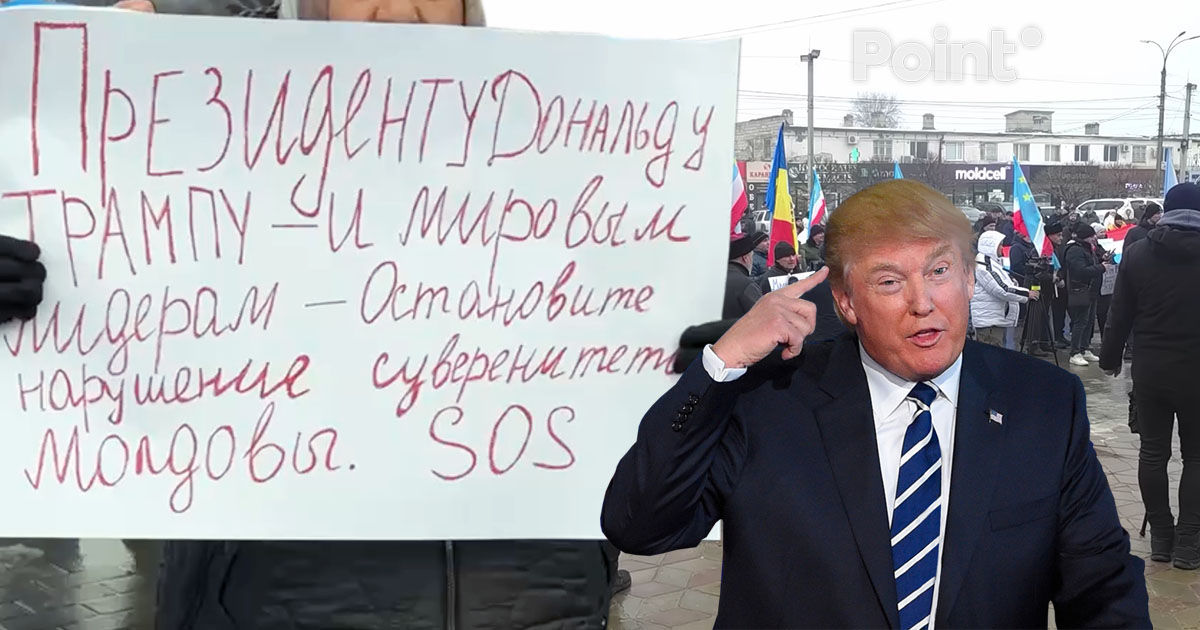 ПРЕЗИДЕНТУ ДОНАЛЬДУ
ТРАМПУ – И МИРОВЫМ
ЛИДЕРАМ – Остановите
нарушение суверенитета
Молдовы. SOS
Point°
moldcell